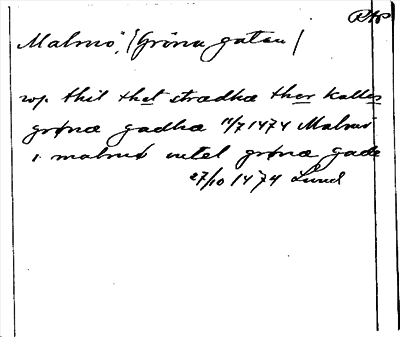 RAP
Malmö, (Gröna gatan)
wp. thil thet strædhæ ther kalles
grønæ gadhæ 11/7 1474 Malmö
i malmø vitel grønæ gade
27/10 1474 Lund